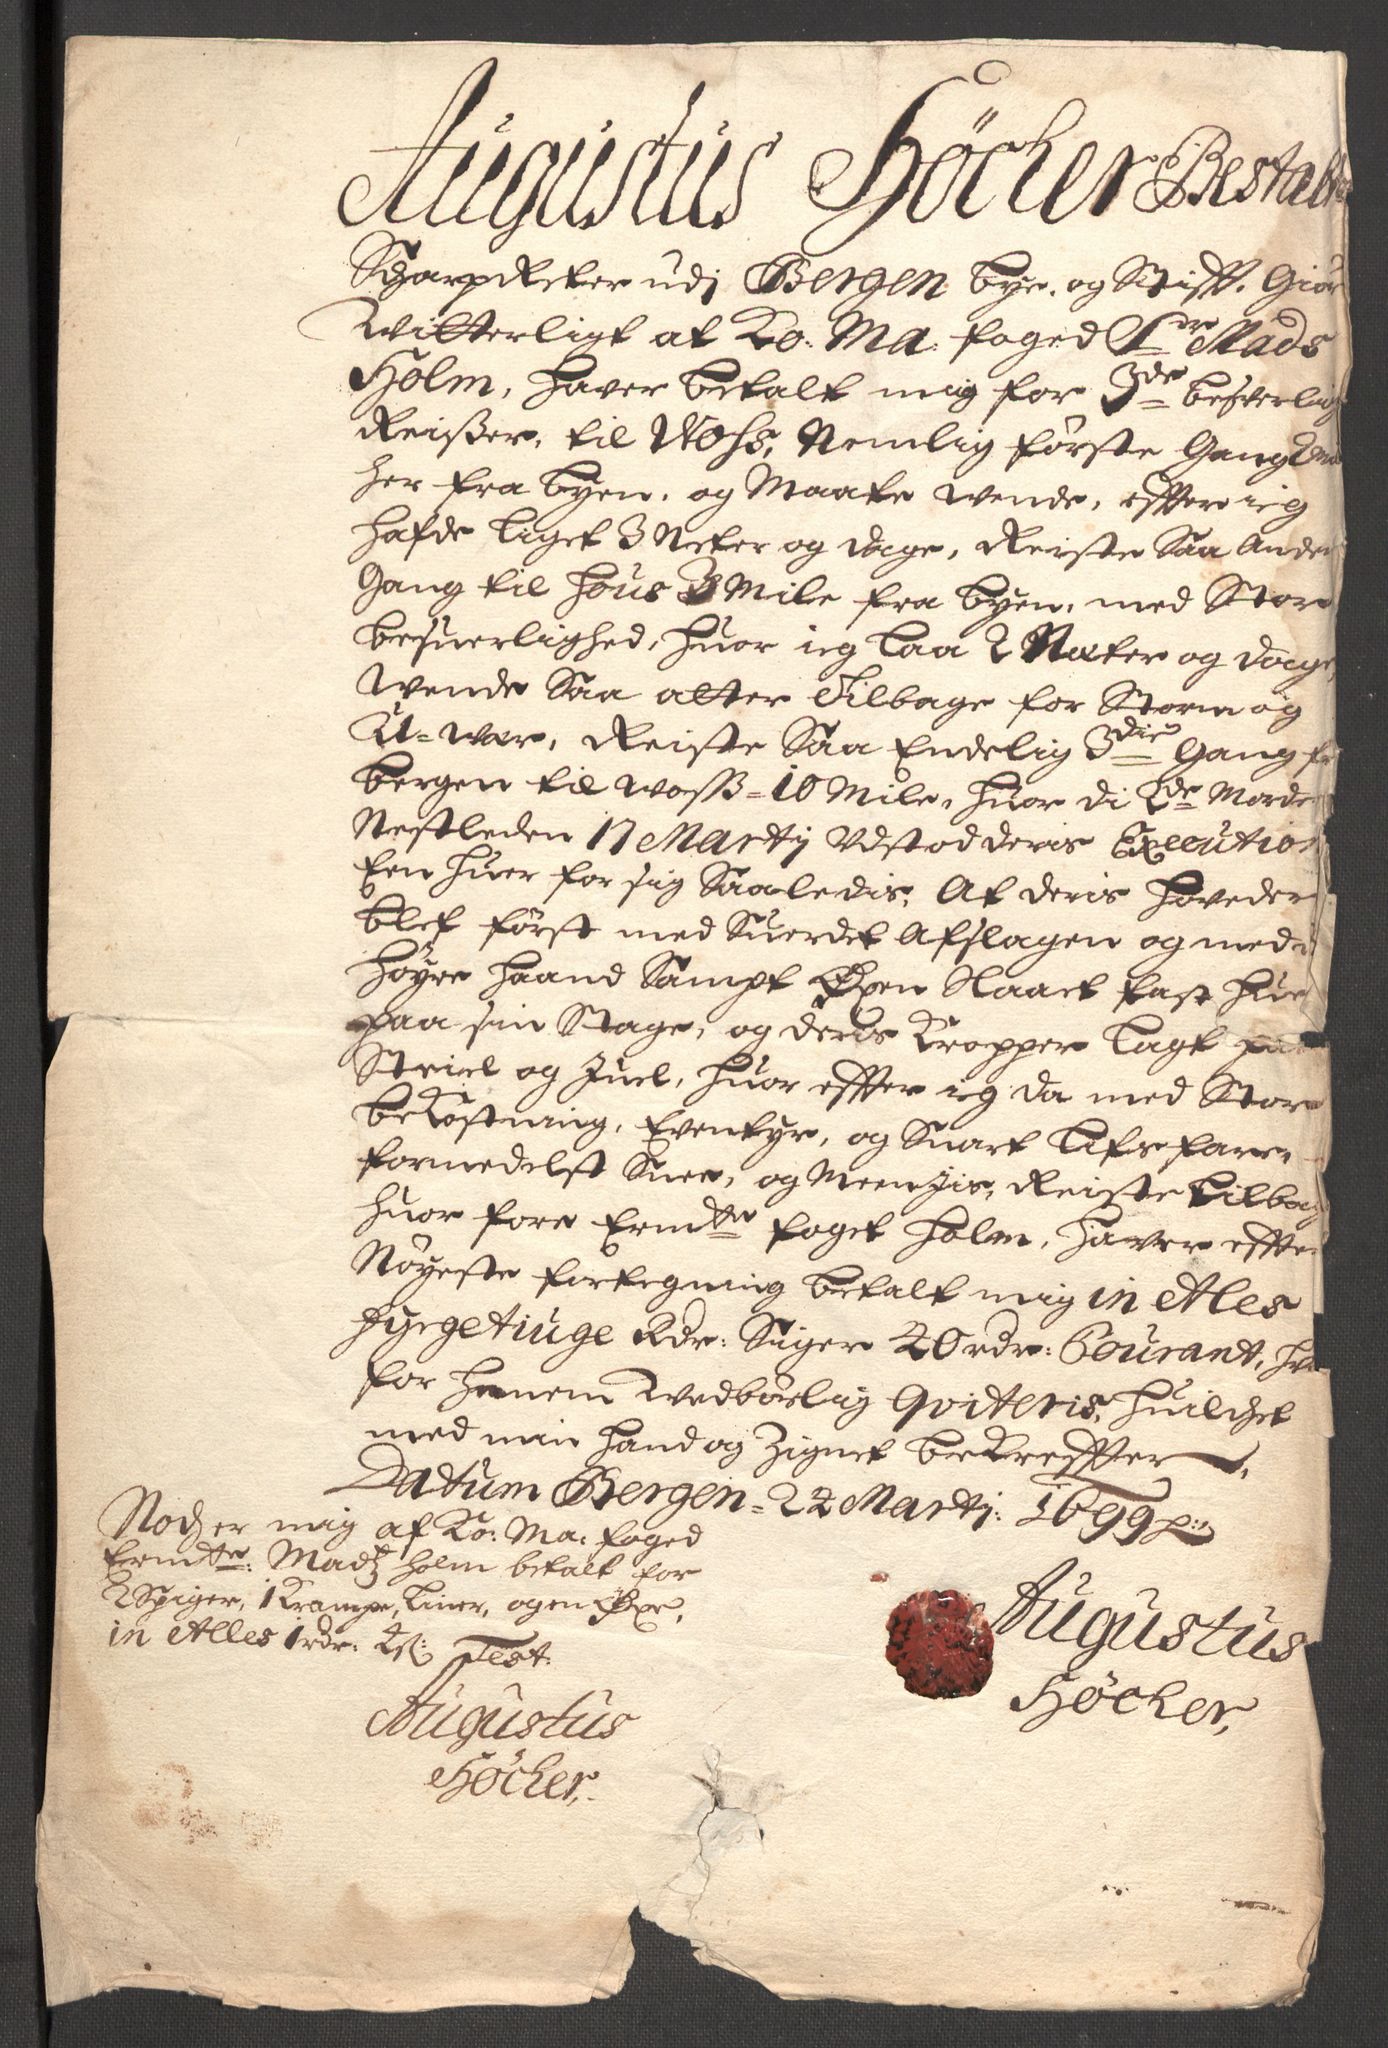 Augustus Höcker Bestalt
Scharpreter udj Bergen bye, og Stifft. Giör
Witterligt at Ko: Ma: foged Sr Mads
Holm, hawer betalt mig for 3de besverlig
Reißer, til Woss, Nemlig förste Gang 2 Mil
her fra byen, og Maate wende, effter ieg
hafde liget 3 Netter og dage, Reiste Saa Anden
Gang til Hous 3 Mile fra byen, med Stor
besuerlighed, huor ieg laa 2 Netter og dage,
Wende Saa atter Tilbage for Storm og
U-wær, Reiste Saa Endelig 3die Gang fra
bergen til Woss = 10 Mile, huor di 2de Morder
Nestleden 17 Martij Vdstod deris Execution
Een huer for sig Saaledis, At deris hoveder
blef först med Suerdet Afslagen og med
höyre haand Sampt Öxen Slaaet fast huer
paa sin Stage, og deris Kropper lagt paa
Steiel og Juel, huor effter ieg da med Stor
bekostning, Eventyr, og Snart lifs fare,
formedelst Snee, og Meen Jis, Reiste tilbag
huor fore Ermdte foget Holm, hawer effter
Nöyeste fortegning betalt mig in Ales
fyrgetiuge Rdr: Siger 40 rdr: Courant, hvor
for hanem Wedbörlig Qviteris, huilchet
med min hand og Zignet bekreffter,
Datum Bergen = 22 Martj: 1699
Augustus
Höcker,
Noch er mig af Ko: Ma: foged
Ermdte: Madtz Holm betalt for
2 Spiger, 1 Krampe, Liner, og en Öxe,
in Alles 1 rdr: 4 s: Test.
Augustus
Höcker,